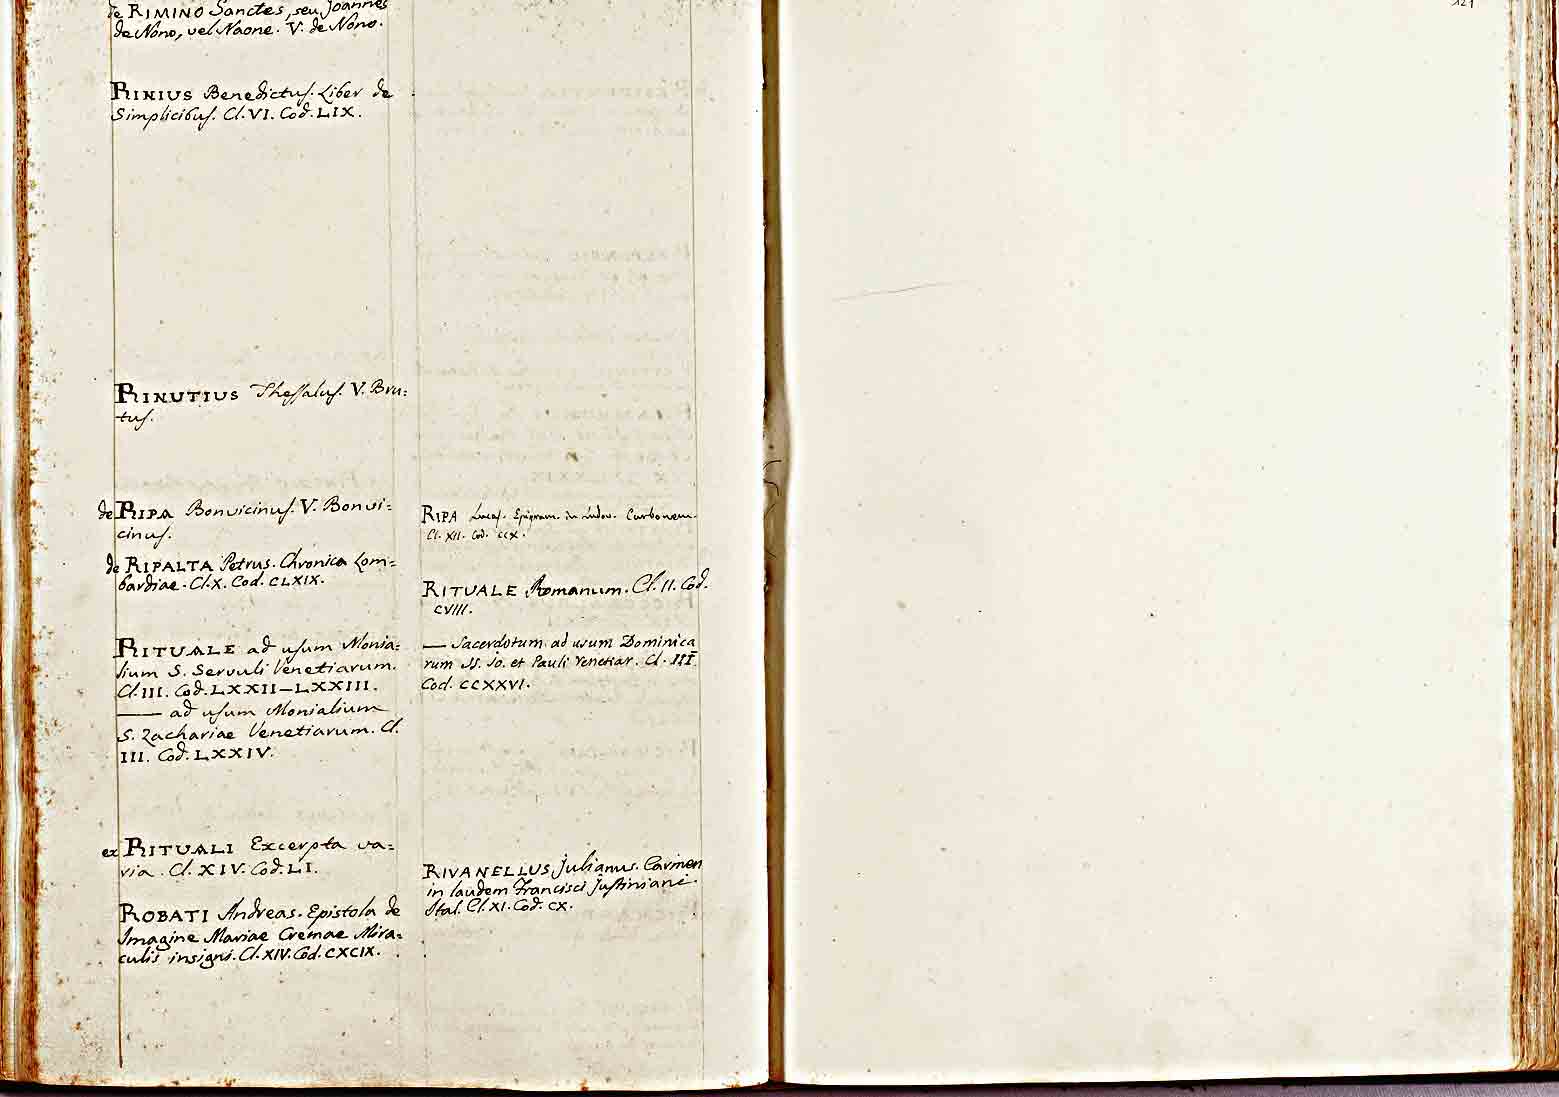 de RIMINO Sanctes, seu Joannes
de Nono, vel Naone. V. de Nono.
RINIUS Benedictus. Liber de
Simplicibus. Cl. VI. Cod. LIX.
RINUTIUS Thessalus. V. Bru=
tus.
de RIPA Bonvicinus. V. Bonvi=
cinus.
de RIPALTA Petrus. Chronica Lom=
bardiae. Cl. X. Cod. CLXIX.
RITUALE ad usum Monia=
lium S. Servuli Venetiarum.
Cl. III. Cod. LXXII—LXXIII.
— ad usum Monialium
S. Zachariae Venetiarum. Cl.
III. Cod. LXXIV.
ex RITUALI Excerpta va=
ria. Cl. XIV. Cod. LI.
ROBATI Andreas. Epistola de
Imagine Mariae Cremae Mira=
culis insigni. Cl. XIV. Cod. CXCIX.
RIPA Lucas. Epigram. in Ludov. Carbonem.
Cl. XII. Cod. CCX.
RITUALE Romanum. Cl. II. Cod.
CVIII.
— Sacerdotum ad usum Dominica
rum SS. Jo. et Pauli Venetiar. Cl. III
Cod. CCXXVI.
RIVANELLUS Julianus. Carmen
in laudem Francisci Justiniani.
Ital. Cl. XI. Cod. CX.
121